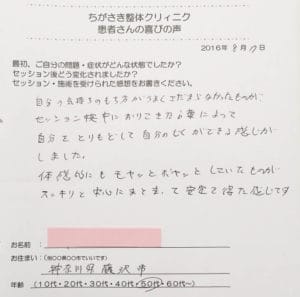 ちがさき整体クリィニク
患者さんの喜びの声
2016年8月17日
最初、ご自分の問題・症状がどんな状態でしたか?
セッション後どう変化されましたか?
セッション・施術を受けられた感想をお書きください。
自分の気持ちのもち方がうまくさだまらなかったものが
セッション検中におりてきた言葉によって
自分をとりもどして自分のしくができる感じが
しました。
体感的にもモヤッとボヤッとしていたものが
スッキリと中心にまとまって安定を得た感じです
お名前:
お住まい:(例:○○県○○市でいいです)
神奈川県藤沢市
年齢 (10代・20代・30代・40代・50代・60代~)